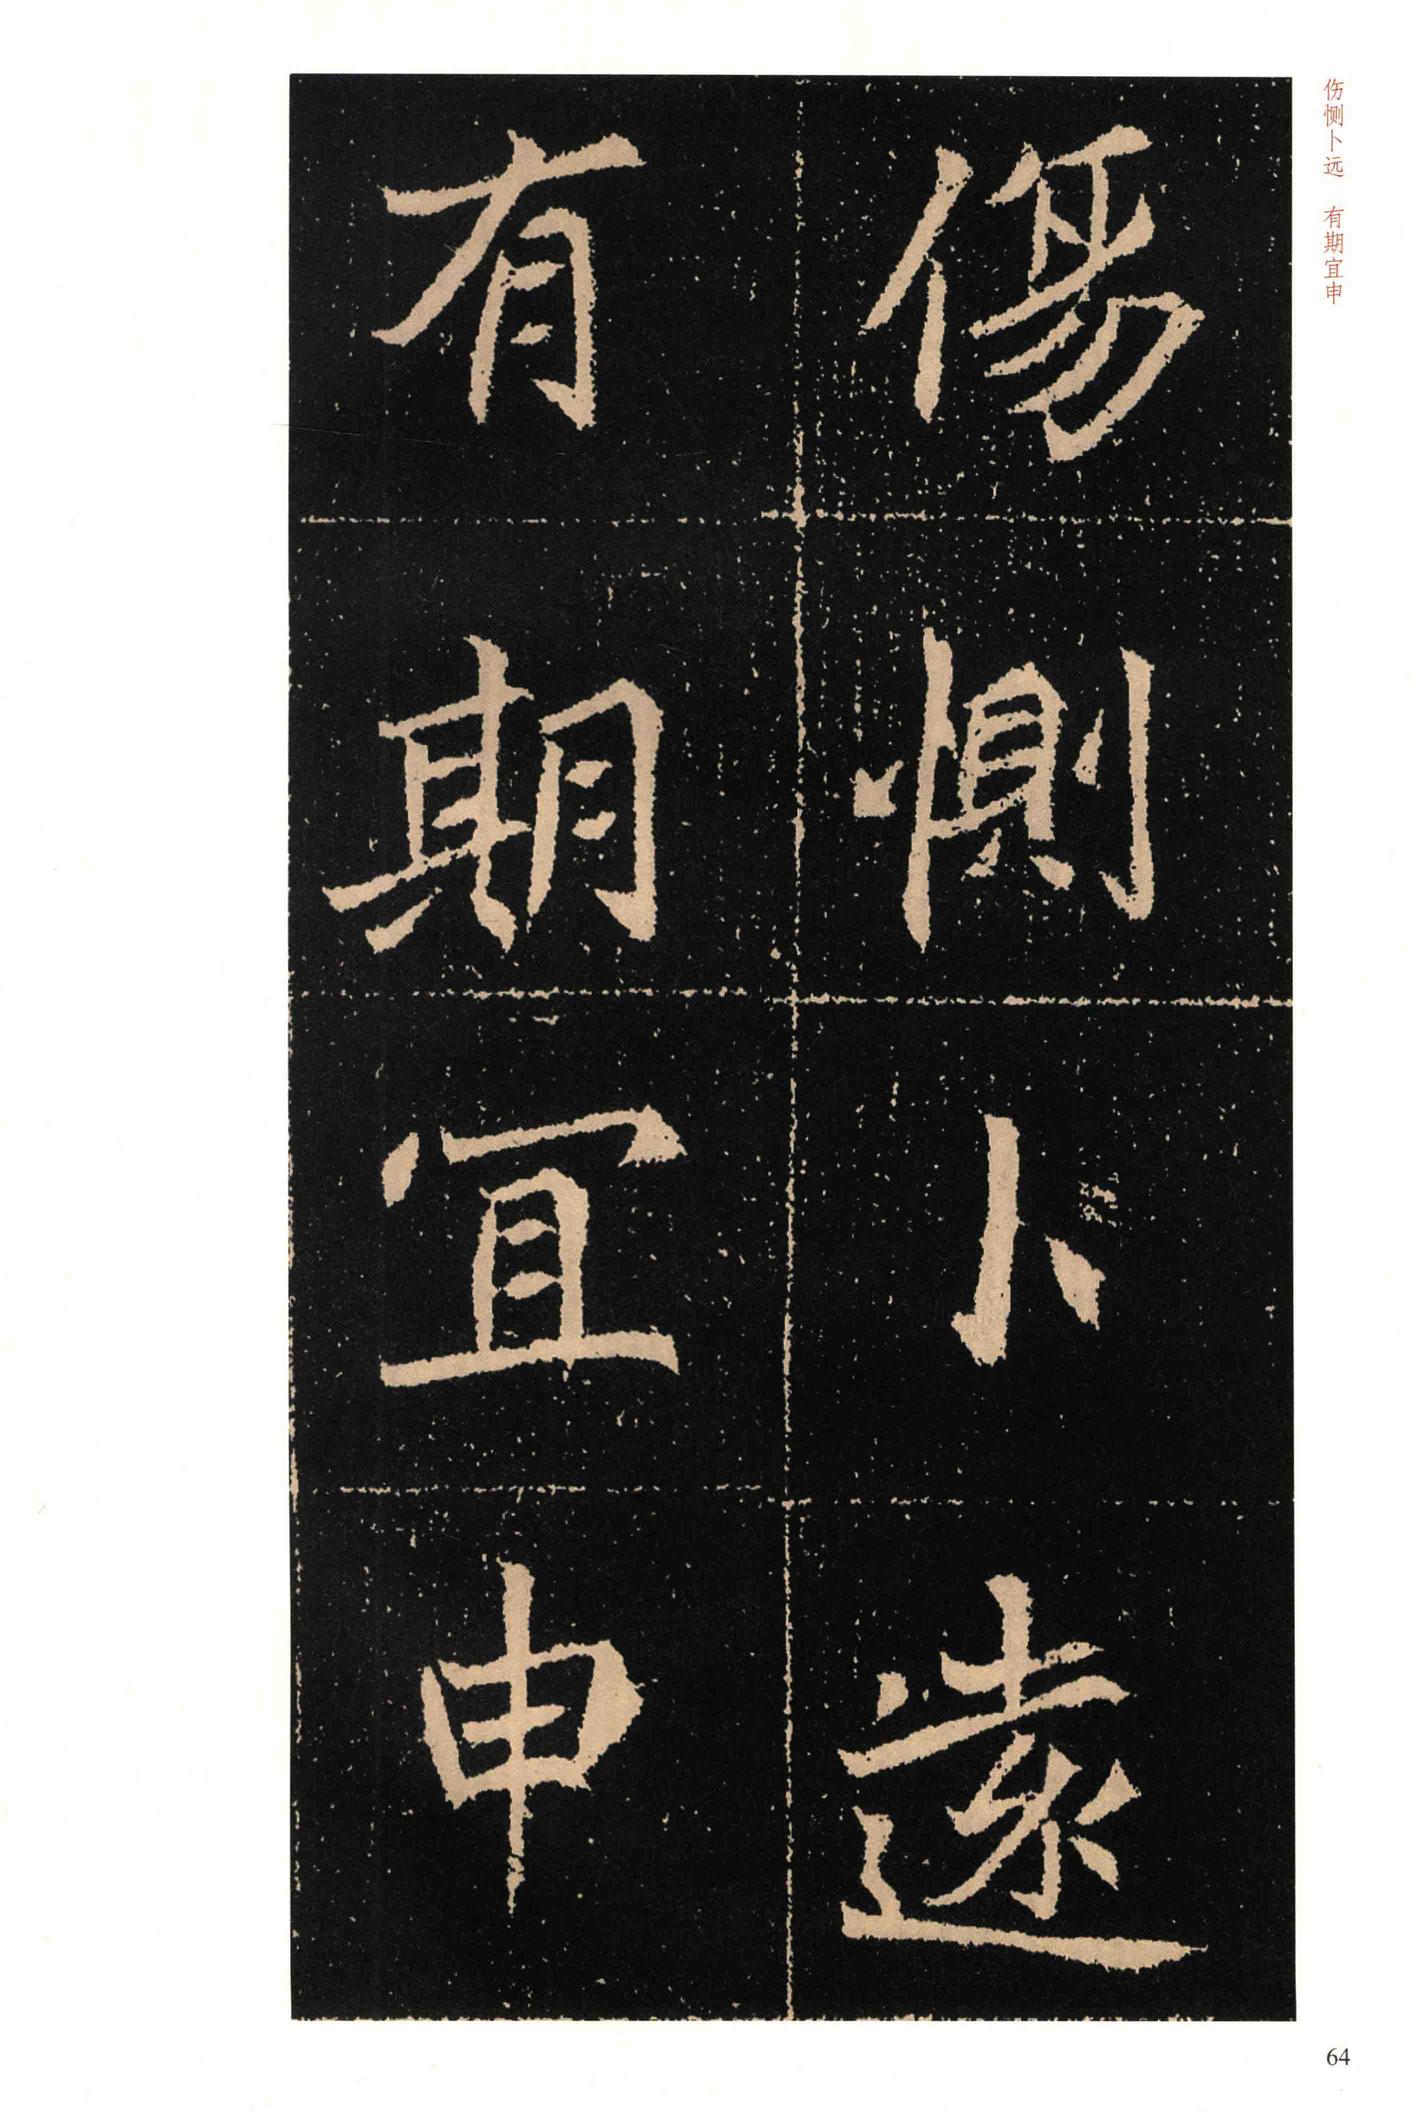 伤恻卜远　有期宜申
傷惻卜遠
有期宜申
64